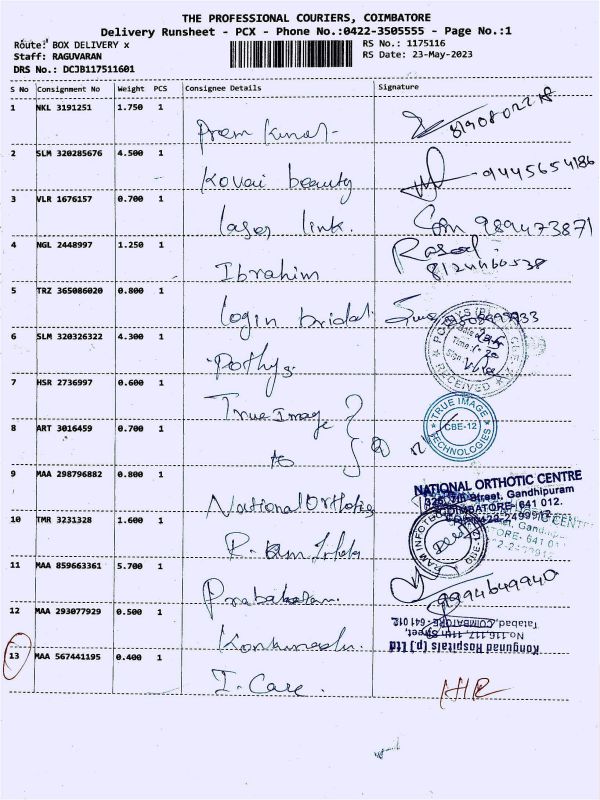 THE PROFESSIONAL COURIERS, COIMBATORE
Delivery Runsheet - PCX - Phone No.:0422-3505555 - Page No.:1
Route: BOX DELIVERY x RS No.: 1175116
Staff: RAGUVARAN RS Date: 23-May-2023
DRS No.: DCJB117511601
S No Consignment No Weight PCS Consignee Details Signature
1 NKL 3191251 1.750 1
Prem Kumar
2 SLM 320285676 4.500 1
Kovai beauty 9445654186
3 VLR 1676157 0.700 1
laser link. 9894473871
4 NGL 2448997 1.250 1
Ibrahim
5 TRZ 365086020 0.800 1
login bridal
6 SLM 320326322 4.300 1
Pothys
RECEIVED
7 HSR 2736997 0.600 1
True Image
TRUE IMAGE TECHNOLOGIES
CBE-12
8 ART 3016459 0.700 1
9 MAA 298796882 0.800 1
National Orthotics
NATIONAL ORTHOTIC CENTRE
7th Street, Gandhipuram
COIMBATORE - 641 012.
10 TMR 3231328 1.600 1
11 MAA 859663361 5.700 1
Prabakaran 9994649940
12 MAA 293077929 0.500 1
Kongunad Hospitals (p) Ltd
No.116,117, 11th Street,
Tatabad, COIMBATORE - 641 012.
13 MAA 567441195 0.400 1
I-Care.